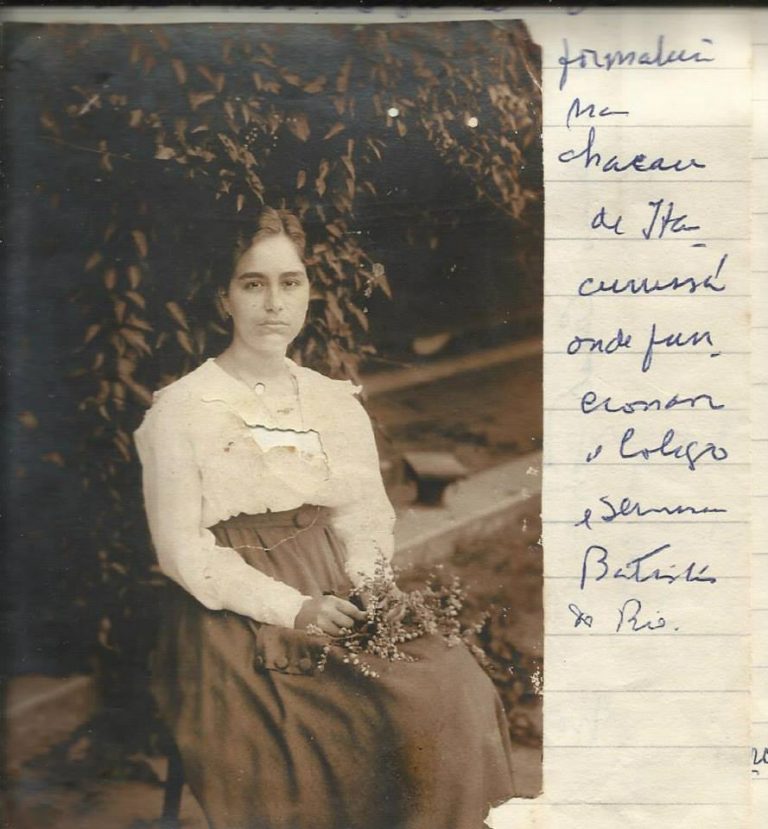 na
chacara
de Ita-
curussá
onde fun-
cionava
o Colegio
e Seminario
Batistas
do Rio.